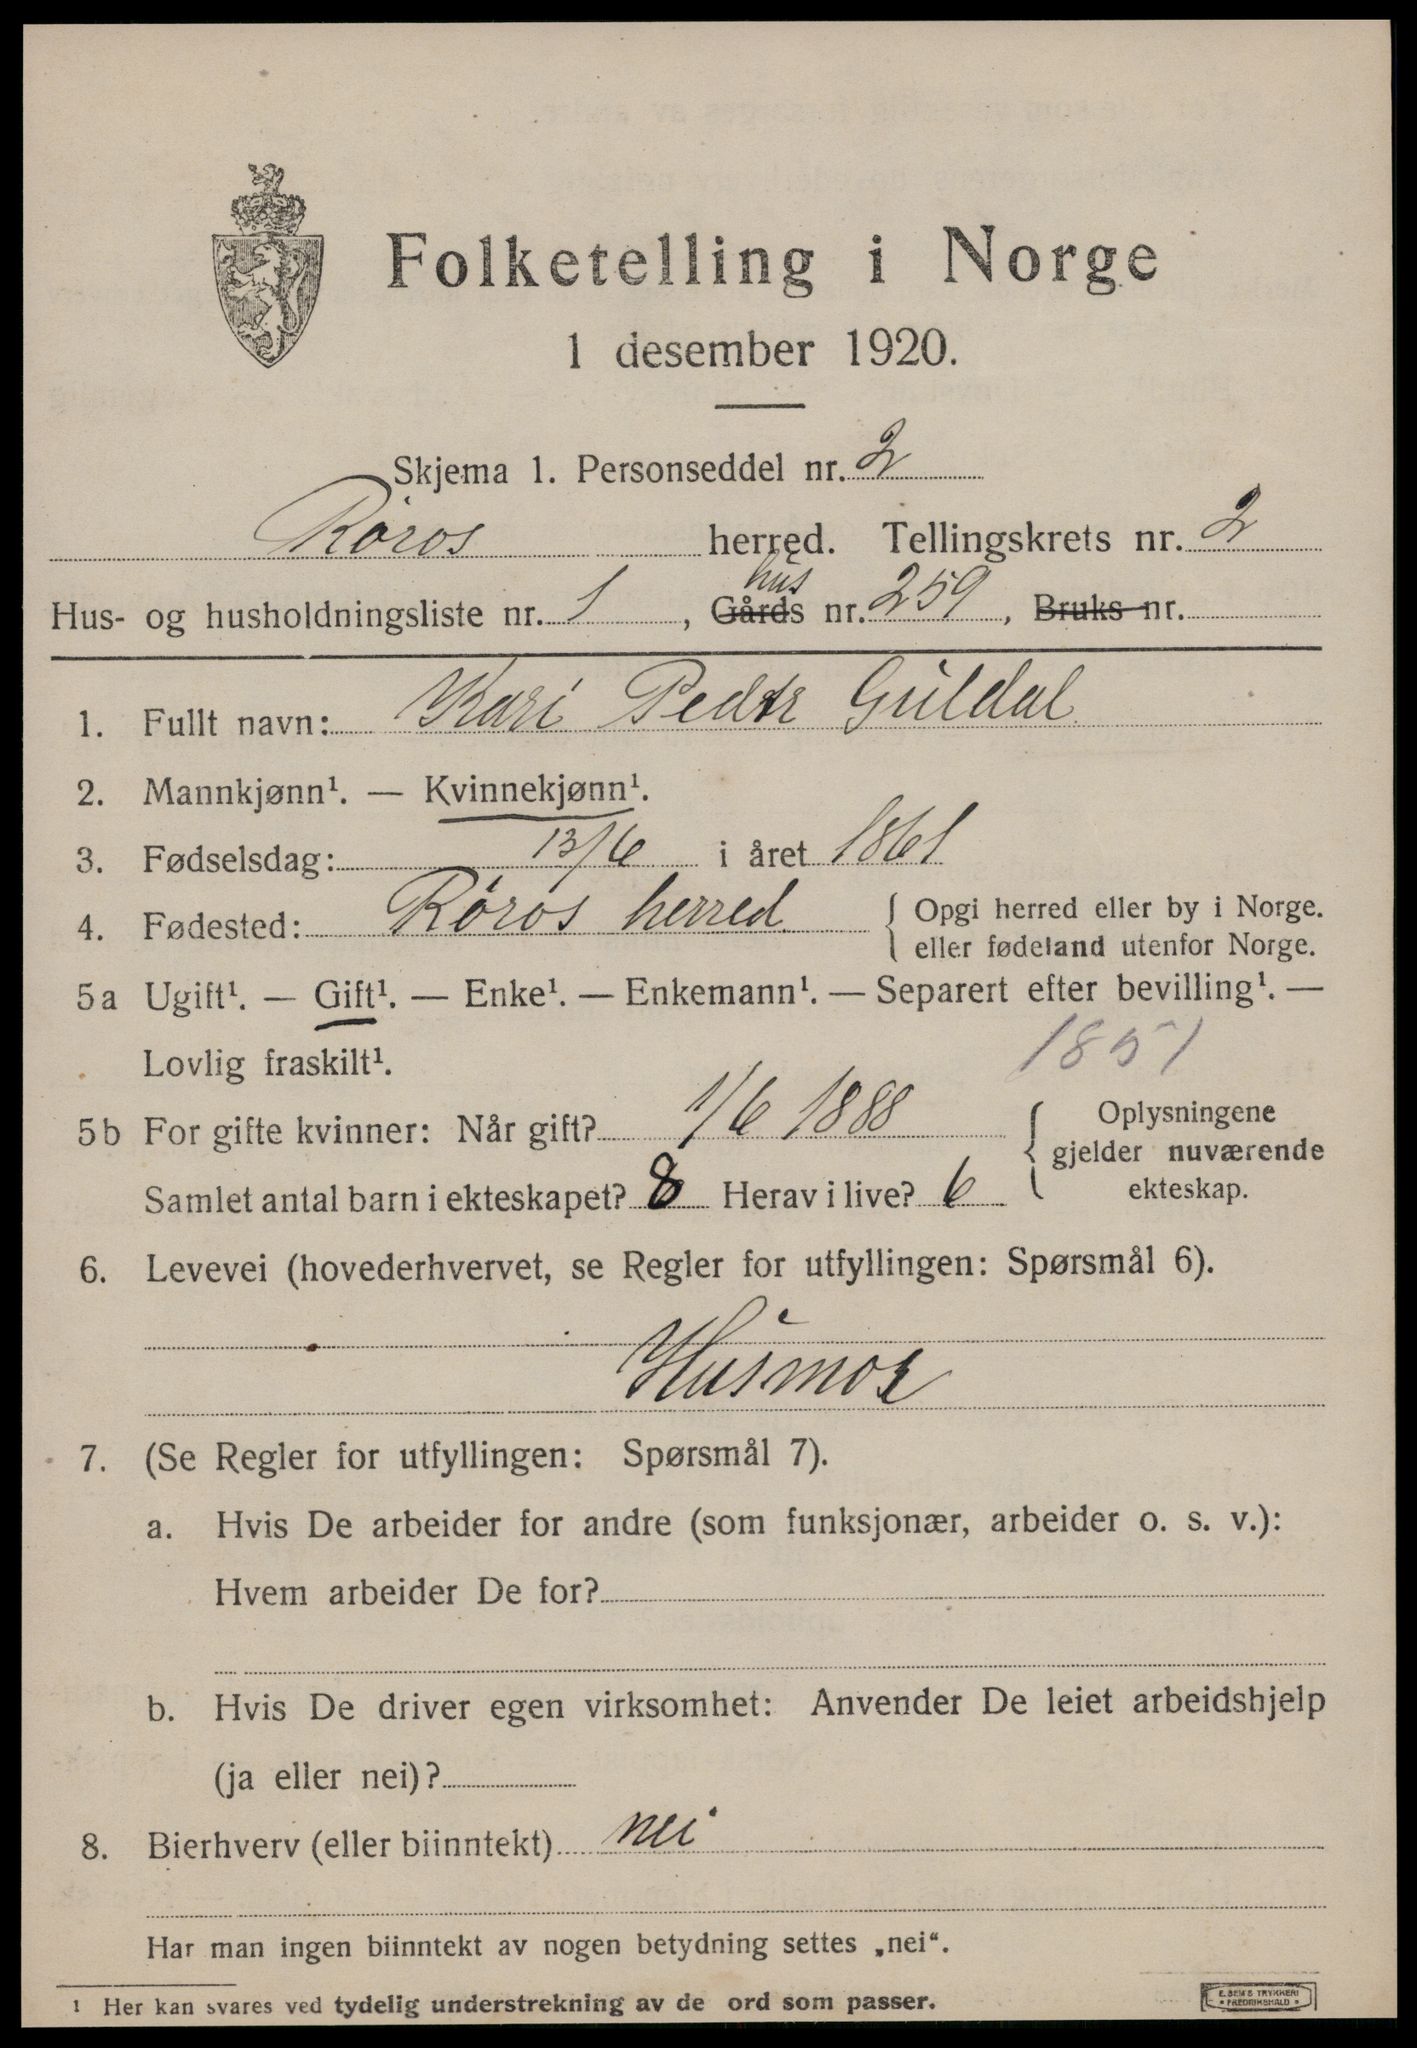 Folketelling i Norge
1 desember 1920.
Skjema 1. Personseddel nr. 2
Røros herred. Tellingskrets nr. 2
hus
Hus- og husholdningsliste nr. 1, Gårds nr. 259, Bruks nr.
1. Fullt navn: Kari Pedtr Guldal
2. Mannkjønn¹. — Kvinnekjønn¹.
3. Fødselsdag: 13/6 i året 1861
4. Fødested: Røros herred { Opgi herred eller by i Norge.
eller fødeland utenfor Norge.
5a Ugift¹. — Gift¹. — Enke¹. — Enkemann¹. — Separert efter bevilling¹. —
Lovlig fraskilt¹. 1851
5b For gifte kvinner: Når gift? 1/6 1888 { Oplysningene
gjelder nuværende
Samlet antal barn i ekteskapet? 8 Herav i live? 6 ekteskap.
6. Levevei (hovederhvervet, se Regler for utfyllingen: Spørsmål 6).
Husmor
7. (Se Regler for utfyllingen: Spørsmål 7).
a. Hvis De arbeider for andre (som funksjonær, arbeider o. s. v.):
Hvem arbeider De for?
b. Hvis De driver egen virksomhet: Anvender De leiet arbeidshjelp
(ja eller nei)?
8. Bierhverv (eller biinntekt) nei
Har man ingen biinntekt av nogen betydning settes „nei“.
¹ Her kan svares ved tydelig understrekning av de ord som passer.
E. SEM'S TRYKKERI
* FREDRIKSHALD *